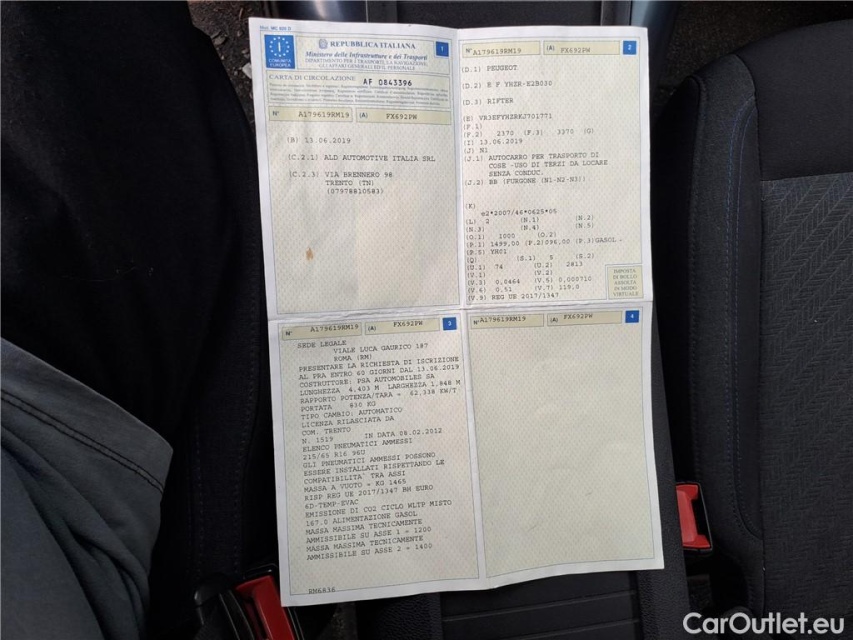 Mod. MC 820 D
COMUNITÀ
EUROPEA
REPUBBLICA ITALIANA
1
Ministero delle Infrastrutture e dei Trasporti
DIPARTIMENTO PER I TRASPORTI, LA NAVIGAZIONE,
GLI AFFARI GENERALI ED IL PERSONALE
CARTA DI CIRCOLAZIONE AF 0843396
N° A179619RM19 (A) FX692PW
(B) 13.06.2019
(C.2.1) ALD AUTOMOTIVE ITALIA SRL
(C.2.3) VIA BRENNERO 98
TRENTO (TN)
(07978810583)
N° A179619RM19 (A) FX692PW 2
(D.1) PEUGEOT
(D.2) E F YHZR-E2B030
(D.3) RIFTER
(E) VR3EFYHZRKJ701771
(F.1)
(F.2) 2370 (F.3) 3370 (G)
(I) 13.06.2019
(J) N1
(J.1) AUTOCARRO PER TRASPORTO DI
COSE -USO DI TERZI DA LOCARE
SENZA CONDUC.
(J.2) BB (FURGONE (N1-N2-N3))
(K)
e2*2007/46*0625*05
(L) 2 (N.1) (N.2)
(N.3) (N.4) (N.5)
(O.1) 1000 (O.2)
(P.1) 1499,00 (P.2)096,00 (P.3)GASOL -
(P.5) YH01
(Q) (S.1) 5 (S.2)
(U.1) 74 (U.2) 2813
(V.1) (V.2)
(V.3) 0,0464 (V.5) 0,000710
(V.6) 0.51 (V.7) 119.0
(V.9) REG UE 2017/1347
IMPOSTA
DI BOLLO
ASSOLTA
IN MODO
VIRTUALE
N° A179619RM19 (A) FX692PW 3
SEDE LEGALE
VIALE LUCA GAURICO 187
ROMA (RM)
PRESENTARE LA RICHIESTA DI ISCRIZIONE
AL PRA ENTRO 60 GIORNI DAL 13.06.2019
COSTRUTTORE: PSA AUTOMOBILES SA
LUNGHEZZA 4,403 M LARGHEZZA 1,848 M
RAPPORTO POTENZA/TARA = 62,338 KW/T
PORTATA 830 KG
TIPO CAMBIO: AUTOMATICO
LICENZA RILASCIATA DA
COM. TRENTO
N. 1519 IN DATA 08.02.2012
ELENCO PNEUMATICI AMMESSI
215/65 R16 96U
GLI PNEUMATICI AMMESSI POSSONO
ESSERE INSTALLATI RISPETTANDO LE
COMPATIBILITA` TRA ASSI
MASSA A VUOTO = KG 1465
RISP REG UE 2017/1347 BH EURO
6D-TEMP-EVAC
EMISSIONE DI CO2 CICLO WLTP MISTO
167.0 ALIMENTAZIONE GASOL
MASSA MASSIMA TECNICAMENTE
AMMISSIBILE SU ASSE 1 = 1200
MASSA MASSIMA TECNICAMENTE
AMMISSIBILE SU ASSE 2 = 1400
RM6838
N° A179619RM19 (A) FX692PW 4
CarOutlet.eu